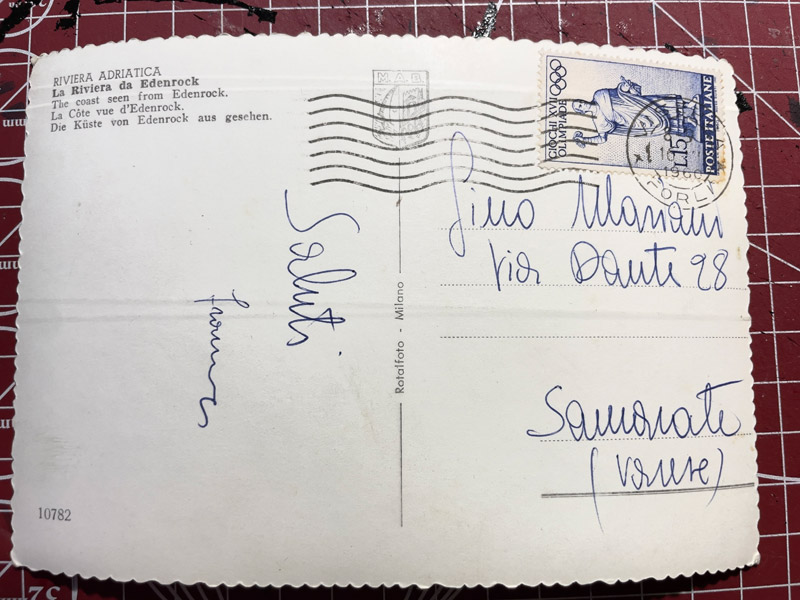 RIVIERA ADRIATICA
La Riviera da Edenrock
The coast seen from Edenrock.
La Côte vue d'Edenrock.
Die Küste von Edenrock aus gesehen.
M.A.R
GIOCHI XVII
OLIMPIADE
L.15
POSTE ITALIANE
1960
FORLI
Gino Mariani
Via Dante 98
Samarate
(Varese)
Saluti
Franca
Rotalfoto - Milano
10782